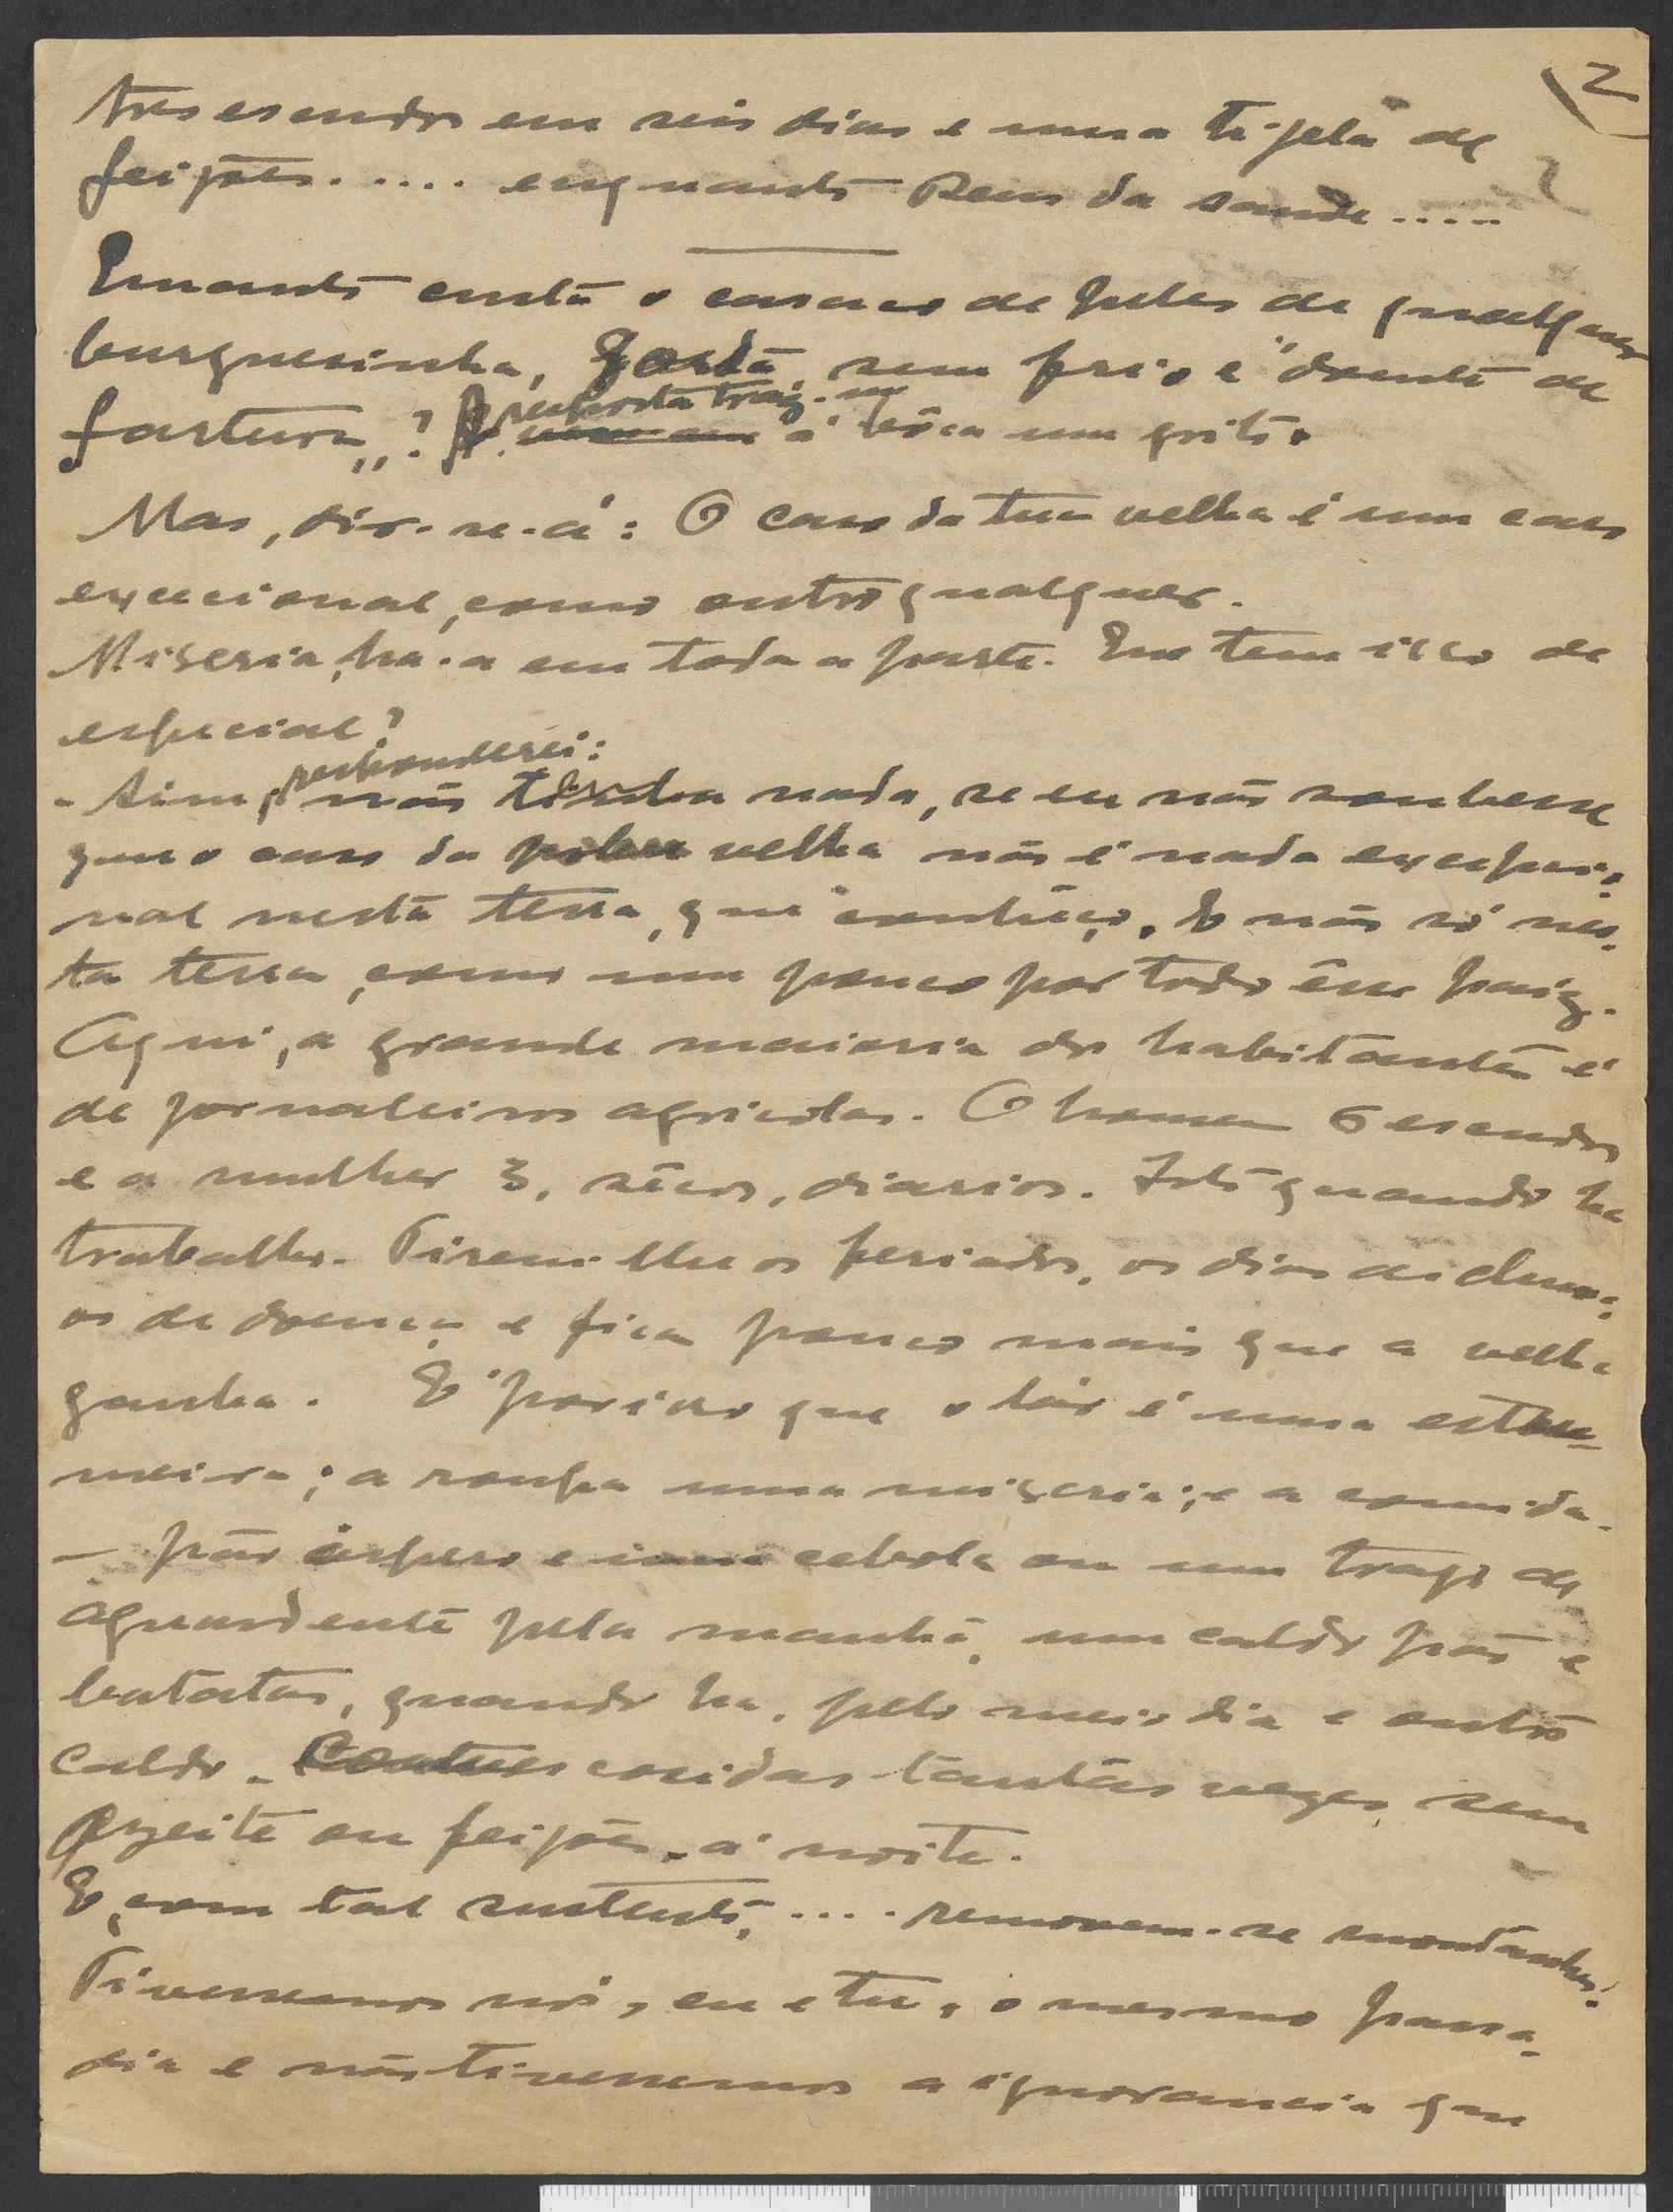 2
tres escudos em seis dias e uma tijela de
feijões..... enquanto Deus da saude.....
Quanto custa o casaco de peles de qualquer
burguesinha, gorda, sem frio e "doente de
fartura"? A resposta traz-me á bôca um grito.
Mas, dir-se-á: O caso da tua velha é um caso
excecional, como outro qualquer.
Miseria, ha-a em toda a parte. Que tem isso de
especial?
- Sim, responderei: não teria nada, se eu não soubesse
que o caso da pobre velha não é nada excepcio-
nal nesta terra, que conheço. E não só nes-
ta terra, como um pouco por todo êsse paiz.
Aqui, a grande maioria dos habitantes é
de jornaleiros agricolas. O homem 6 escudos
e a mulher 3, sêcos, diarios. Isto quando ha
trabalho. Tirem-lhe os feriados, os dias de chuva,
os de doença e fica pouco mais que a velha
ganha. E' por isso que o lár é uma estru-
meira; a roupa uma miseria; e a comida -
- pão áspero e uma cebola ou um trago de
aguardente pela manhã, um caldo pão e
batatas, quando ha, pelo meio dia e outro
caldo. Couves cosidas tantas vezes, sem
azeite ou feijões, á noite.
E, com tal sustento, .... removem-se montanhas!
Tivessemos nós, eu e tu, o mesmo passa-
dia e não tivessemos a ignorancia que